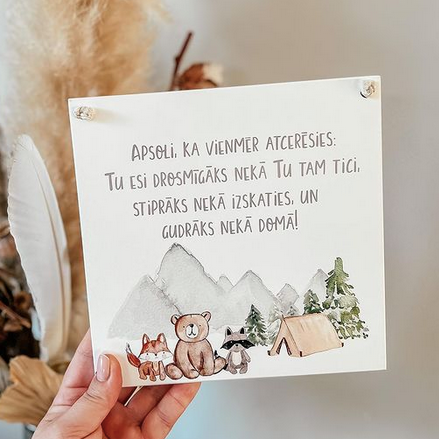 APSOLI, KA VIENMĒR ATCERĒSIES:
TU ESI DROSMĪGĀKS NEKĀ TU TAM TICI,
STIPRĀKS NEKĀ IZSKATIES, UN
GUDRĀKS NEKĀ DOMĀ!